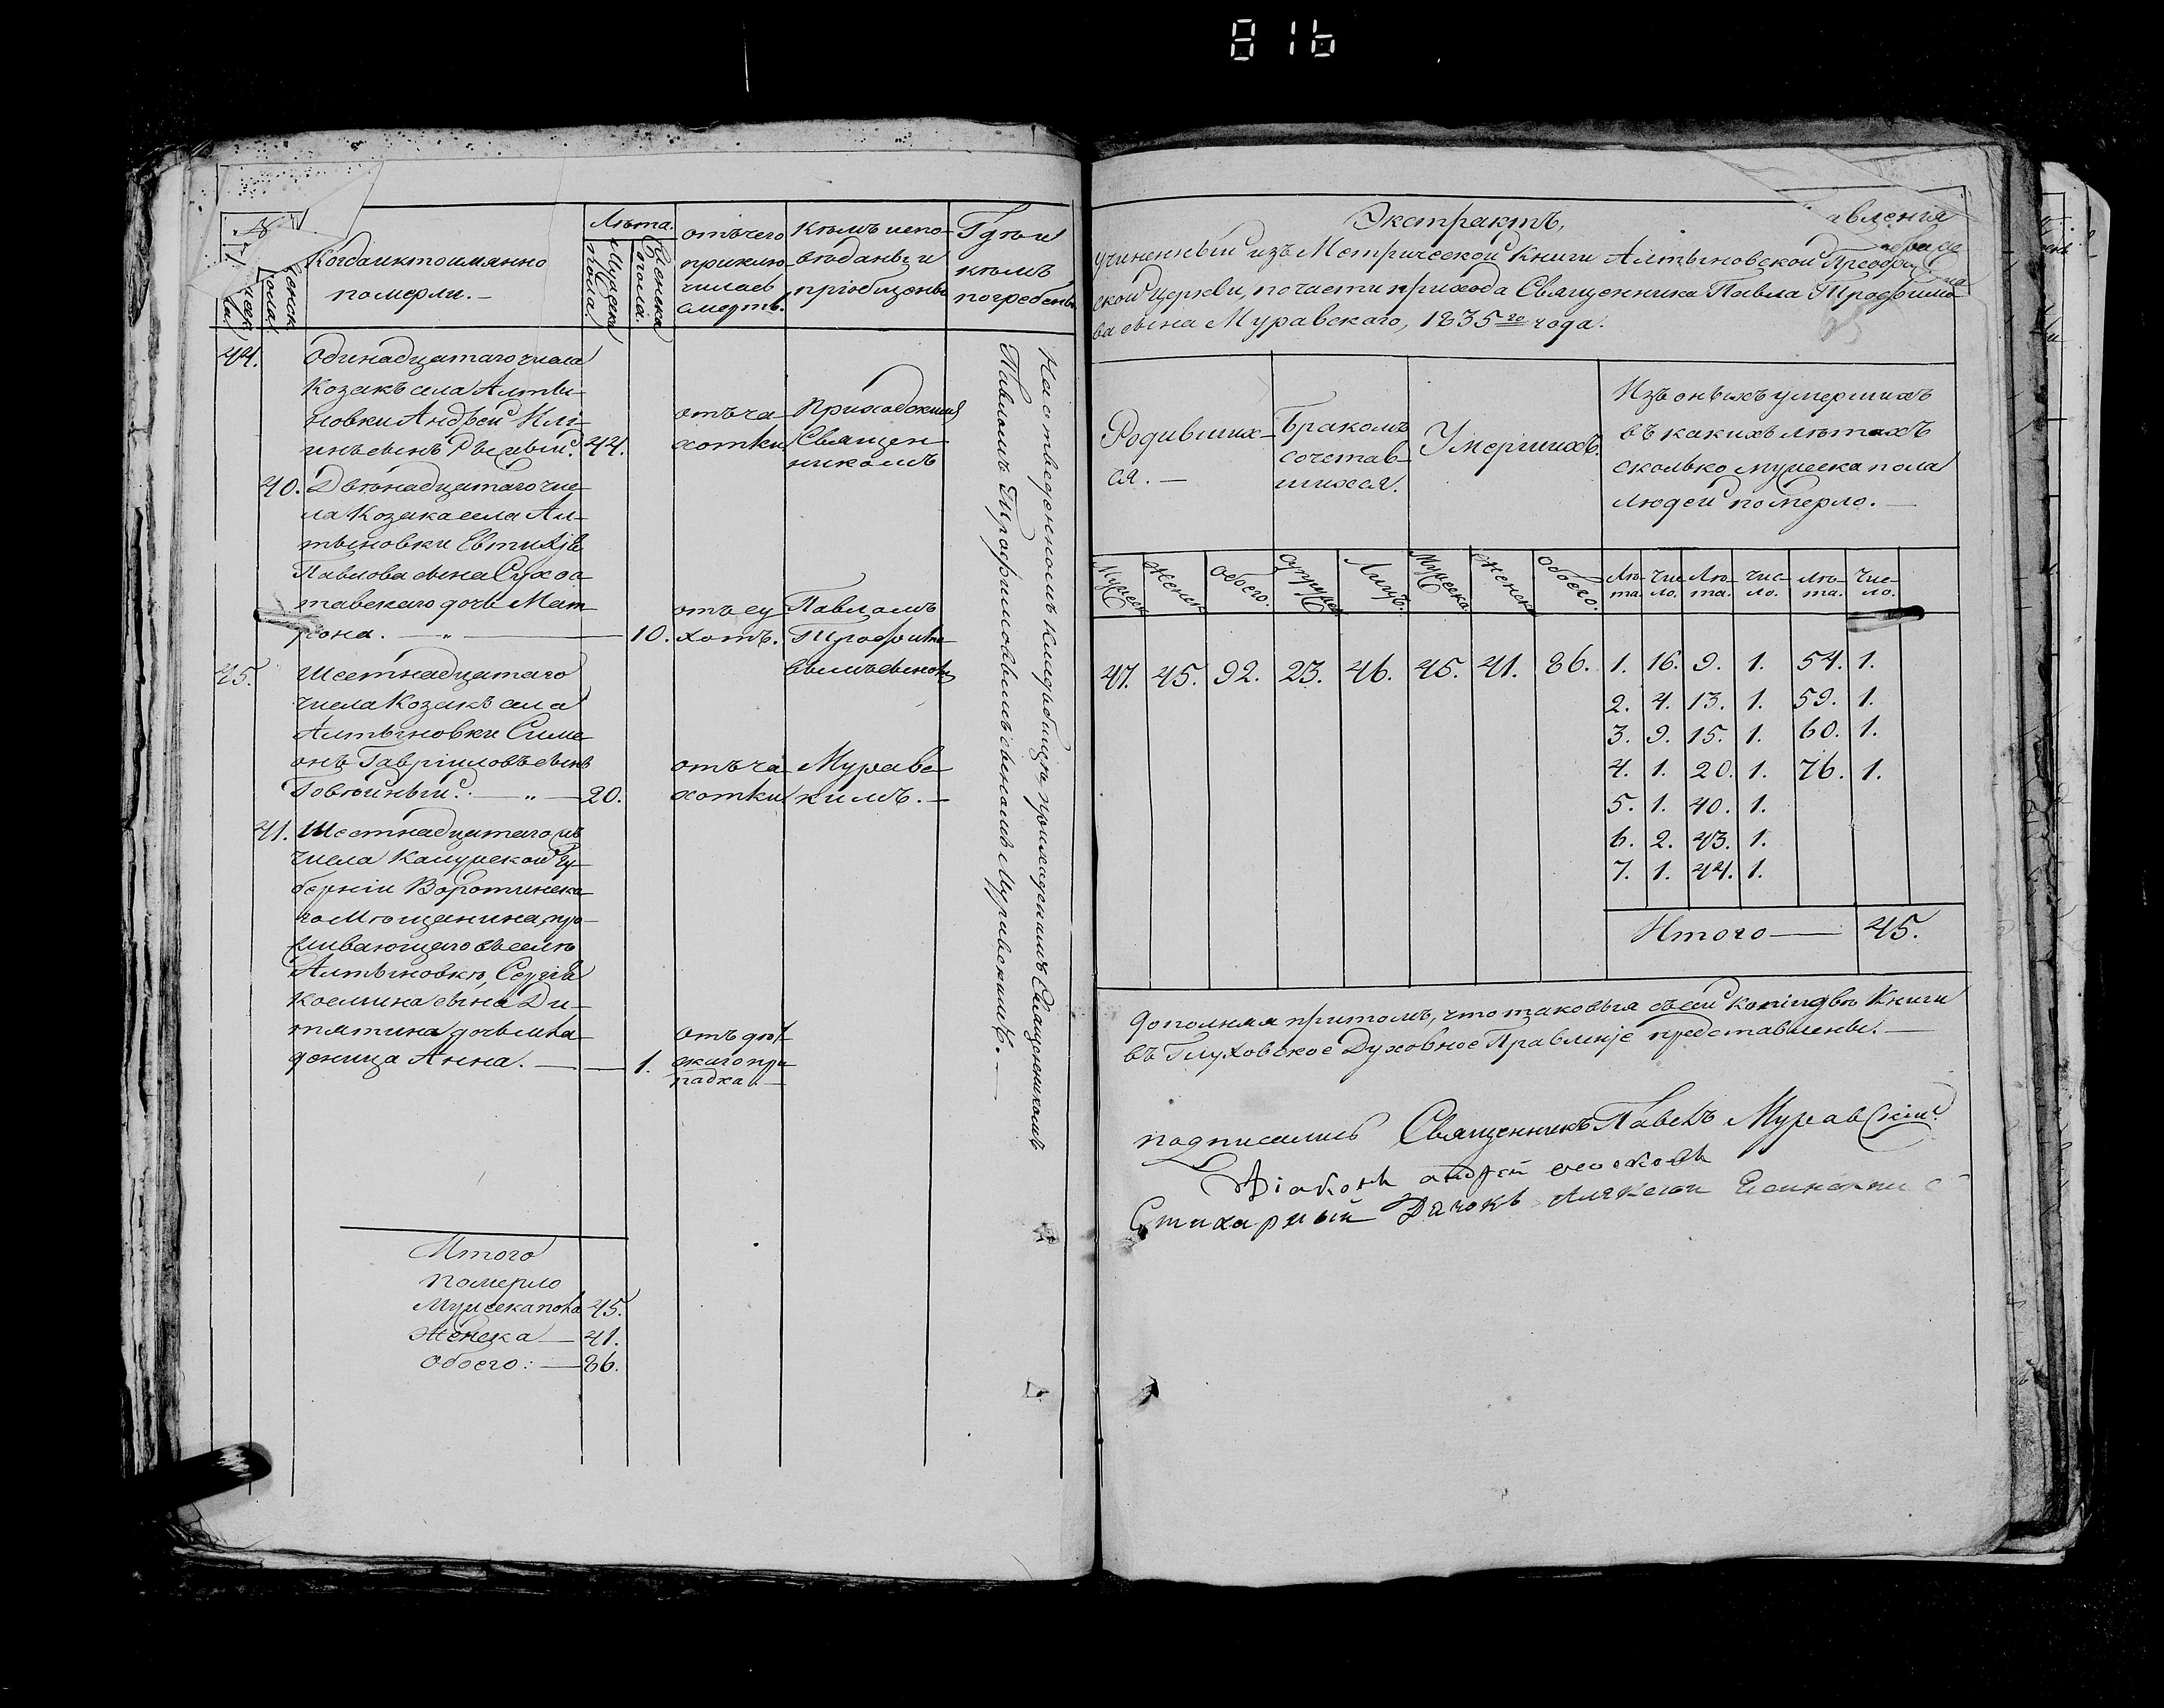 816
№
Когда и кто имянно
померли. —
Лѣта.
Мужеска
пола.
Женска
пола.
отъ чего
приклю-
чилась
смерть.
кѣмъ испо-
вѣданы и
пріобщены
Гдѣ и
кѣмъ
погребены
44.
Одинадцатаго числа
Козакъ села Алты-
новки Андрей Илі-
инъ сынъ
44.
отъ ча-
хотки
40.
Двѣнадцатаго чис-
ла Козака села Ал-
тыновки Евтихія
Павлова сына Сухос-
тавскаго дочь Мат-
рона. — „ —
10.
отъ су-
хотъ.
45.
Шестнадцатаго
числа Козакъ села
Алтыновки Симе-
онъ Гавріиловъ сынъ
Говтиный. — „ —
20.
отъ ча-
хотки
41.
Шестнадцатаго
числа Калужской Гу-
берніи Воротинска-
го Мѣщанина, про-
живающаго въ селѣ
Алтыновкѣ, Сергія
Космина сына Ди-
тятина дочь мла-
деница Анна. —
1.
отъ дѣт-
скаго при-
падка. —
Приходскимъ
Священ-
никомъ
Павломъ
Трофимо-
вымъ сыномъ
Муравс-
кимъ. —
На отведенномъ кладбищѣ приходскимъ Священникомъ
Павломъ Трофимовымъ сыномъ Муравскимъ. —
Итого
померло
Мужеска пола 45.
Женска — 41.
Обоего: — 86.
Экстрактъ,
учиненный изъ Метрической Книги Алтыновской
ской церкви, по части прихода Священника Павла Трофимо-
ва сына Муравскаго, 1835го года.
Родивших-
ся. —
Бракомъ
сочетав-
шихся.
Умершихъ.
Изъ оныхъ умершихъ
въ какихъ лѣтахъ
сколько мужеска пола
людей померло. —
Мужеск. Женск. Обоего. Супруж. Лицъ. Мужеска. Женск. Обоего. Лѣ- Чис- Лѣ- чис- лѣ- чис-
та. ло. та. ло. та. ло.
47. 45. 92. 23. 46. 45. 41. 86. 1. 16. 9. 1. 54. 1.
2. 4. 13. 1. 59. 1.
3. 9. 15. 1. 60. 1.
4. 1. 20. 1. 76. 1.
5. 1. 40. 1.
6. 2. 43. 1.
7. 1. 44. 1.
Итого — 45.
Дополняя притомъ, что таковыя съ сей копіи двѣ Книги
въ Глуховское Духовное Правленіе представлены. —
подписались Священникъ Павелъ Муравскій
Діаконъ Андрей
Стихарный Дячокъ Алексѣй